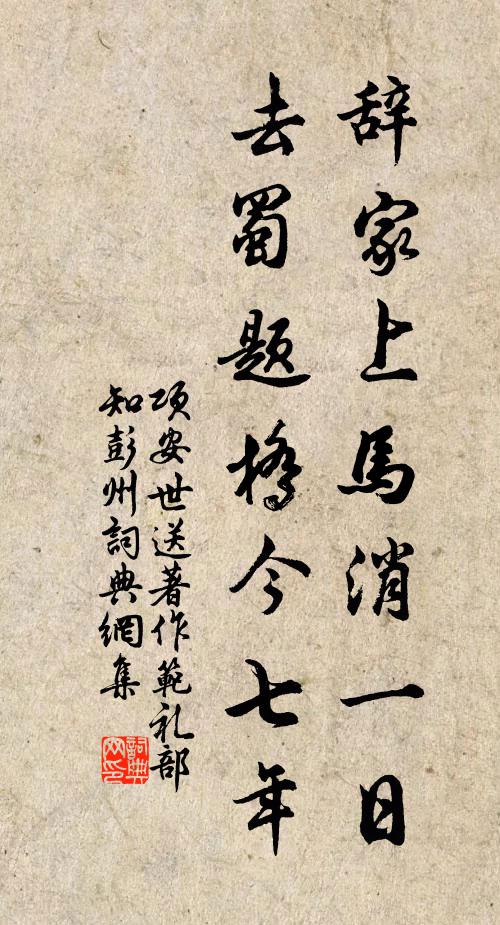 辞家上馬消一日
去蜀題橋今七年
項安世送著作範礼部
知彭州詞典網集
詞典
网印